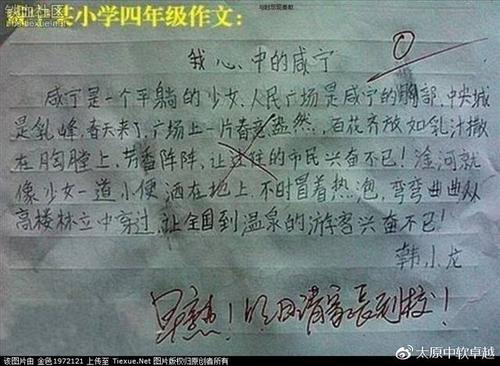 铁血社区
bbs.tiexue.net
与时俱进装教
某小学四年级作文：
0
我心中的咸宁
咸宁是一个平躺的少女，人民广场是咸宁的胸部，中央城
是乳峰，春天来了，广场上一片春意盎然，百花齐放如乳汁撒
在胸膛上，芳香阵阵，让过往的市民兴奋不已！淦河就
像少女一道小便洒在地上，不时冒着热泡，弯弯曲曲从
高楼林立中穿过，让全国到温泉的游客兴奋不已！
韩小龙
早熟！明日请家长到校！
该图片由 金色1972121 上传至 Tiexue.Net 图片版权归原创者所有
@太原中软卓越